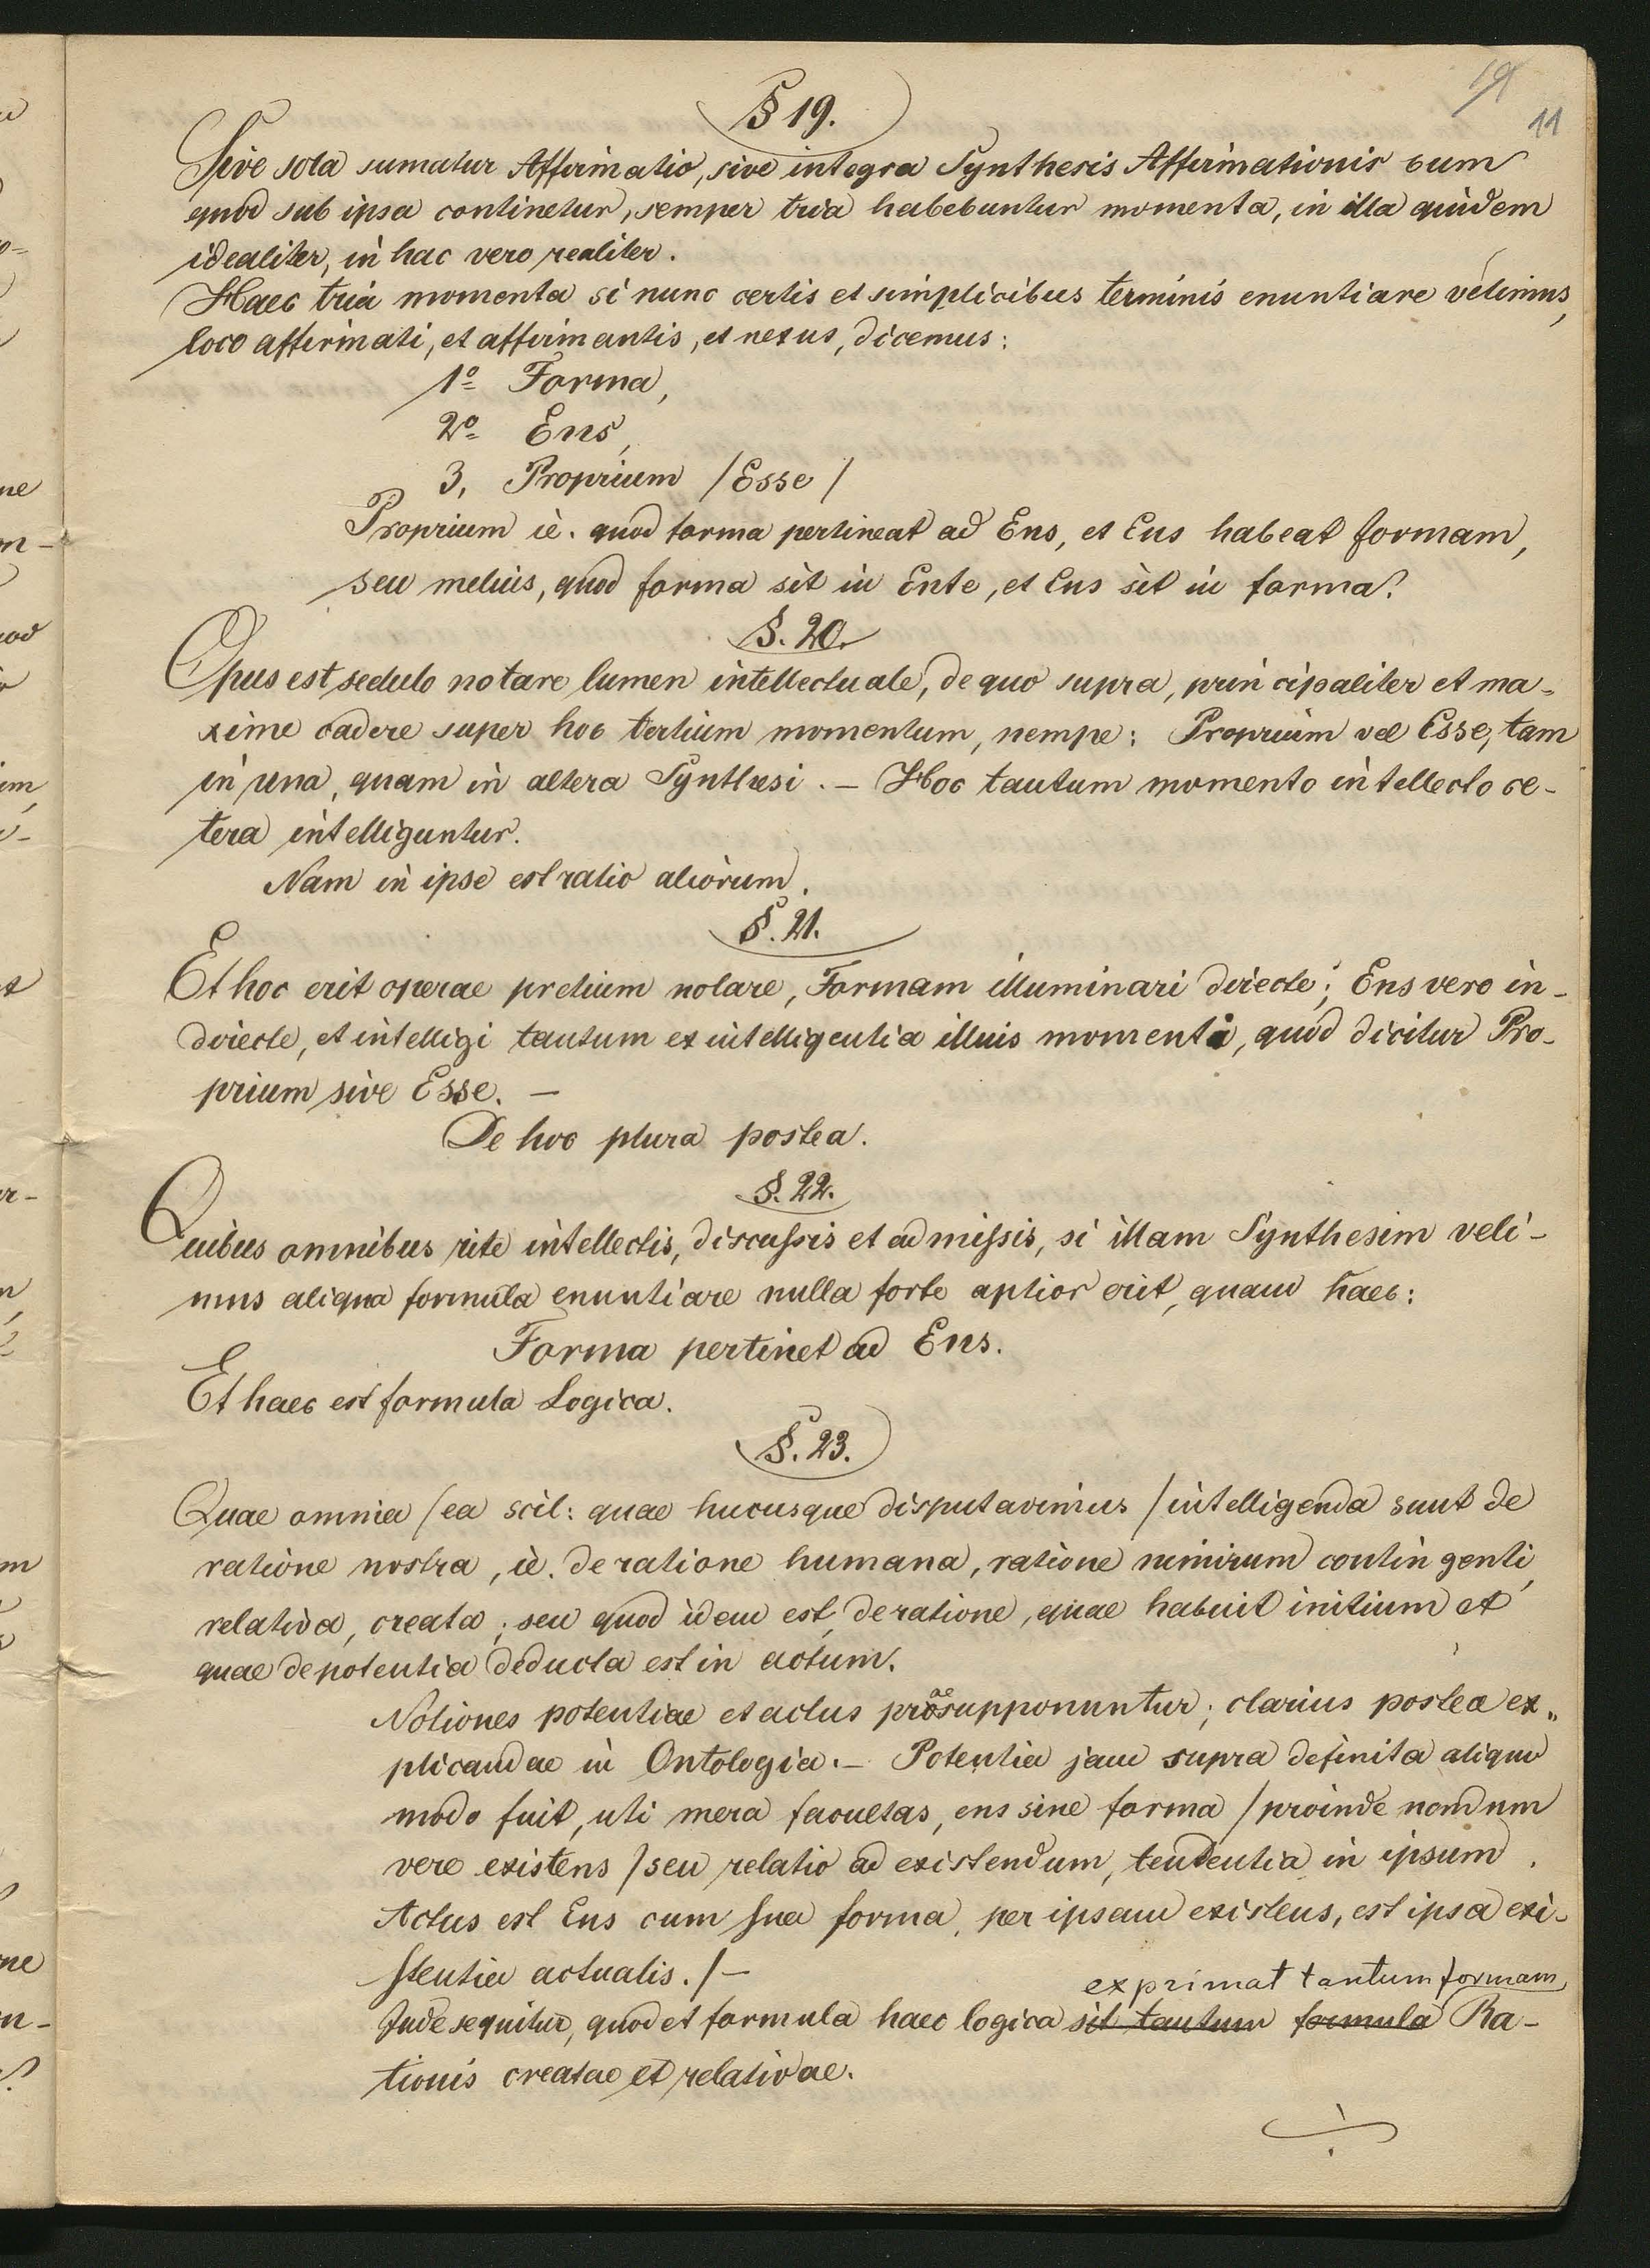 19
11
§ 19.
Sive sola sumatur Affirmatio, sive integra Synthesis Affirmationis cum
quod sub ipsa continetur, semper tria habebuntur momenta, in illa quidem
idealiter, in hac vero realiter.
Haec tria momenta si nunc certis et simplicibus terminis enuntiare velimus,
loco affirmati, et affirmantis, et nexus, dicemus:
1º Forma,
2º Ens,
3, Proprium /Esse/
Proprium ie. quod forma pertineat ad Ens, et Ens habeat formam,
seu melius, quod forma sit in Ente, et Ens sit in forma.
§. 20.
Opus est sedulo notare lumen intellectuale, de quo supra, principaliter et ma-
xime cadere super hoc tertium momentum, nempe: Proprium vel Esse, tam
in una, quam in altera Synthesi. – Hoc tantum momento intellecto ce-
tera intelliguntur.
Nam in ipse est ratio aliorum.
§. 21.
Et hoc erit operae pretium notare, Formam illuminari directe; Ens vero in-
directe, et intelligi tantum ex intelligentia illius momenti, quod dicitur Pro-
prium sive Esse. –
De hoc plura postea.
§. 22.
Quibus omnibus rite intellectis, discussis et admissis, si illam Synthesim veli-
mus aliqua formula enuntiare nulla forte aptior erit, quam haec:
Forma pertinet ad Ens.
Et haec est formula Logica.
§. 23.
Quae omnia /ea scil: quae hucusque disputavimus/ intelligenda sunt de
ratione nostra, ie. de ratione humana, ratione nimirum contingenti,
relativa, creata; seu quod idem est, de ratione, quae habuit initium et
quae de potentia deducta est in actum.
Notiones potentiae et actus praesupponuntur; clarius postea ex„
plicandae in Ontologia. – Potentia jam supra definita aliquo
modo fuit, uti mera facultas, ens sine forma /proinde nondum
vere existens/ seu relatio ad existendum, tendentia in ipsum.
Actus est Ens cum sua forma, per ipsam existens, est ipsa exi-
stentia actualis./–
exprimat tantum formam
Inde sequitur, quod et formula haec logica sit tantum formula Ra-
tionis creatae et relativae.